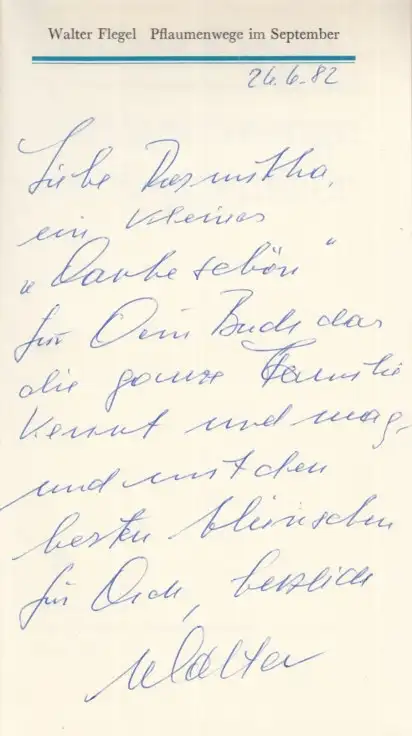 Walter Flegel Pflaumenwege im September
26.6.82
Liebe Rosmitha,
ein kleines
„Dankeschön“
für Dein Buch das
die ganze Familie
kennt und mag,
und mit den
besten Wünschen
für Dich, herzlich
Walter